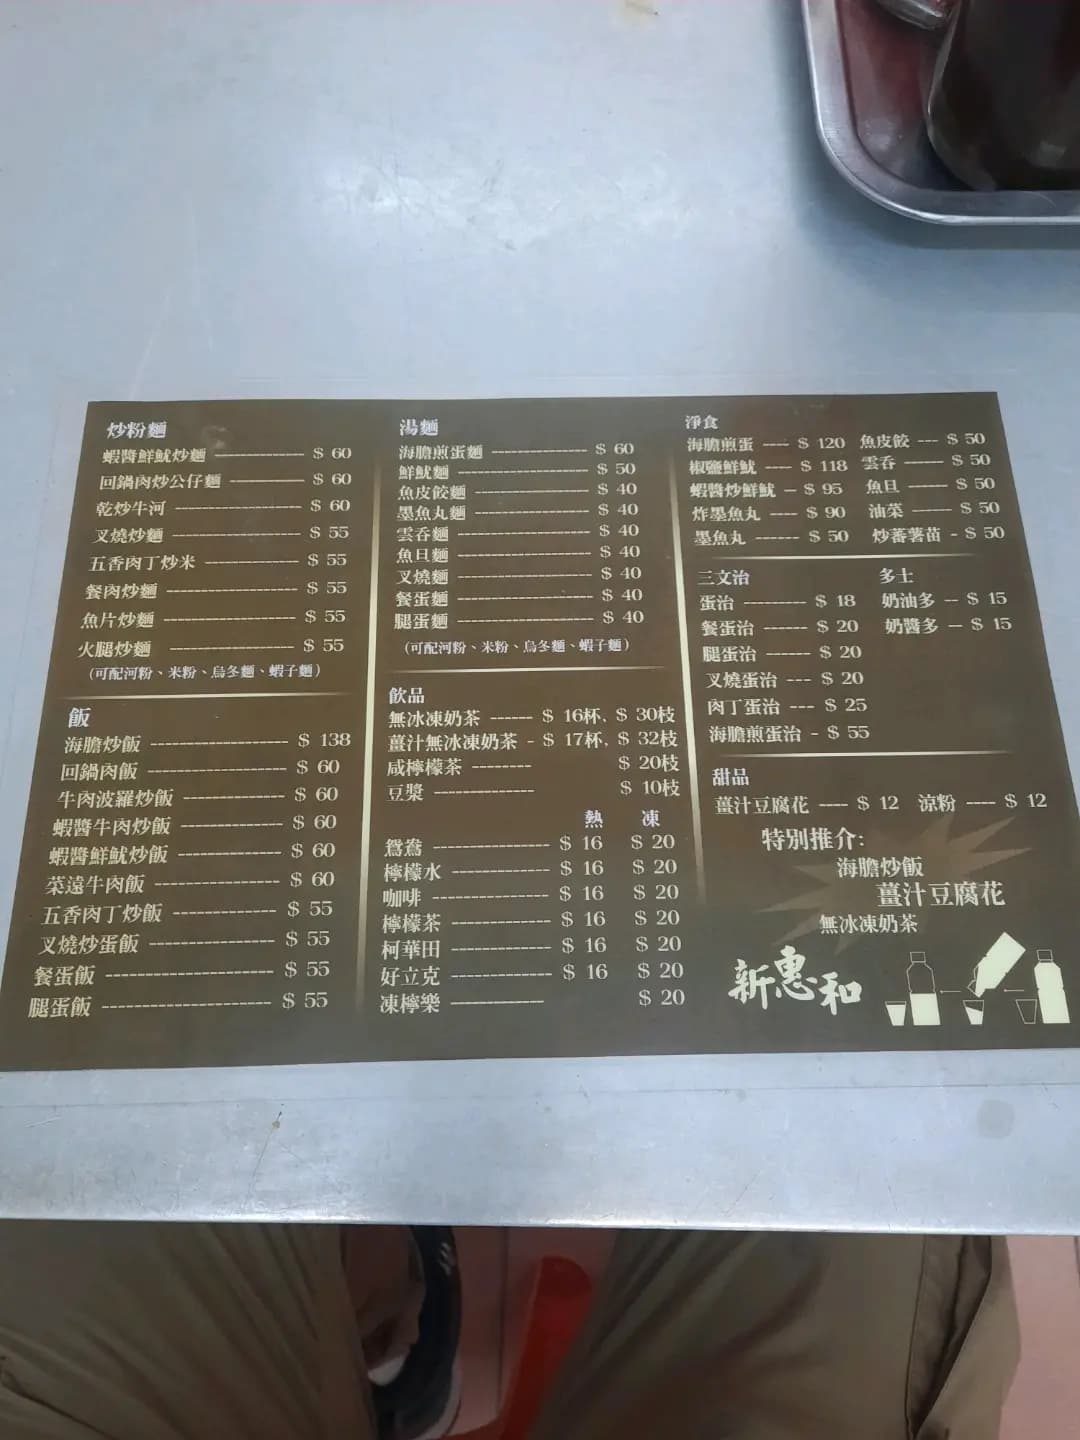 炒粉麵
蝦醬鮮魷炒麵 ---- $ 60
回鍋肉炒公仔麵 ---- $ 60
乾炒牛河 ---- $ 60
叉燒炒麵 ---- $ 55
五香肉丁炒米 ---- $ 55
餐肉炒麵 ---- $ 55
魚片炒麵 ---- $ 55
火腿炒麵 ---- $ 55
(可配河粉、米粉、烏冬麵、蝦子麵)
飯
海膽炒飯 ---- $ 138
回鍋肉飯 ---- $ 60
牛肉波羅炒飯 ---- $ 60
蝦醬牛肉炒飯 ---- $ 60
蝦醬鮮魷炒飯 ---- $ 60
菜遠牛肉飯 ---- $ 60
五香肉丁炒飯 ---- $ 55
叉燒炒蛋飯 ---- $ 55
餐蛋飯 ---- $ 55
腿蛋飯 ---- $ 55
湯麵
海膽煎蛋麵 ---- $ 60
鮮魷麵 ---- $ 50
魚皮餃麵 ---- $ 40
墨魚丸麵 ---- $ 40
雲吞麵 ---- $ 40
魚旦麵 ---- $ 40
叉燒麵 ---- $ 40
餐蛋麵 ---- $ 40
腿蛋麵 ---- $ 40
(可配河粉、米粉、烏冬麵、蝦子麵)
飲品
無冰凍奶茶 ---- $ 16杯, $ 30枝
薑汁無冰凍奶茶 - $ 17杯, $ 32枝
咸檸檬茶 ---- $ 20枝
豆漿 ---- $ 10枝
熱 凍
鴛鴦 ---- $ 16 $ 20
檸檬水 ---- $ 16 $ 20
咖啡 ---- $ 16 $ 20
檸檬茶 ---- $ 16 $ 20
柯華田 ---- $ 16 $ 20
好立克 ---- $ 16 $ 20
凍檸樂 ---- $ 20
淨食
海膽煎蛋 ---- $ 120 魚皮餃 --- $ 50
椒鹽鮮魷 ---- $ 118 雲吞 ---- $ 50
蝦醬炒鮮魷 -- $ 95 魚旦 ---- $ 50
炸墨魚丸 ---- $ 90 油菜 ---- $ 50
墨魚丸 ---- $ 50 炒蕃薯苗 - $ 50
三文治 多士
蛋治 ---- $ 18 奶油多 -- $ 15
餐蛋治 ---- $ 20 奶醬多 -- $ 15
腿蛋治 ---- $ 20
叉燒蛋治 --- $ 20
肉丁蛋治 --- $ 25
海膽煎蛋治 - $ 55
甜品
薑汁豆腐花 ---- $ 12 涼粉 ---- $ 12
特別推介:
海膽炒飯
薑汁豆腐花
無冰凍奶茶
新惠和